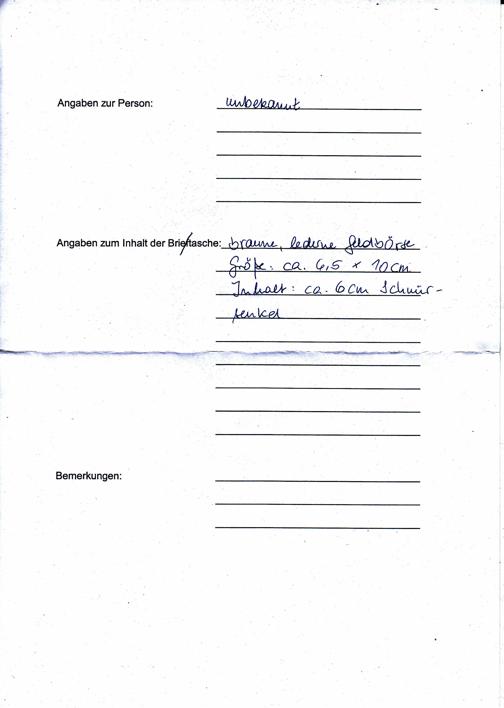 Angaben zur Person: unbekannt
Angaben zum Inhalt der Brieftasche: braune, lederne Geldbörse
Größe: ca. 6,5 x 10 cm
Inhalt: ca. 6 cm Schnür-
senkel
Bemerkungen: